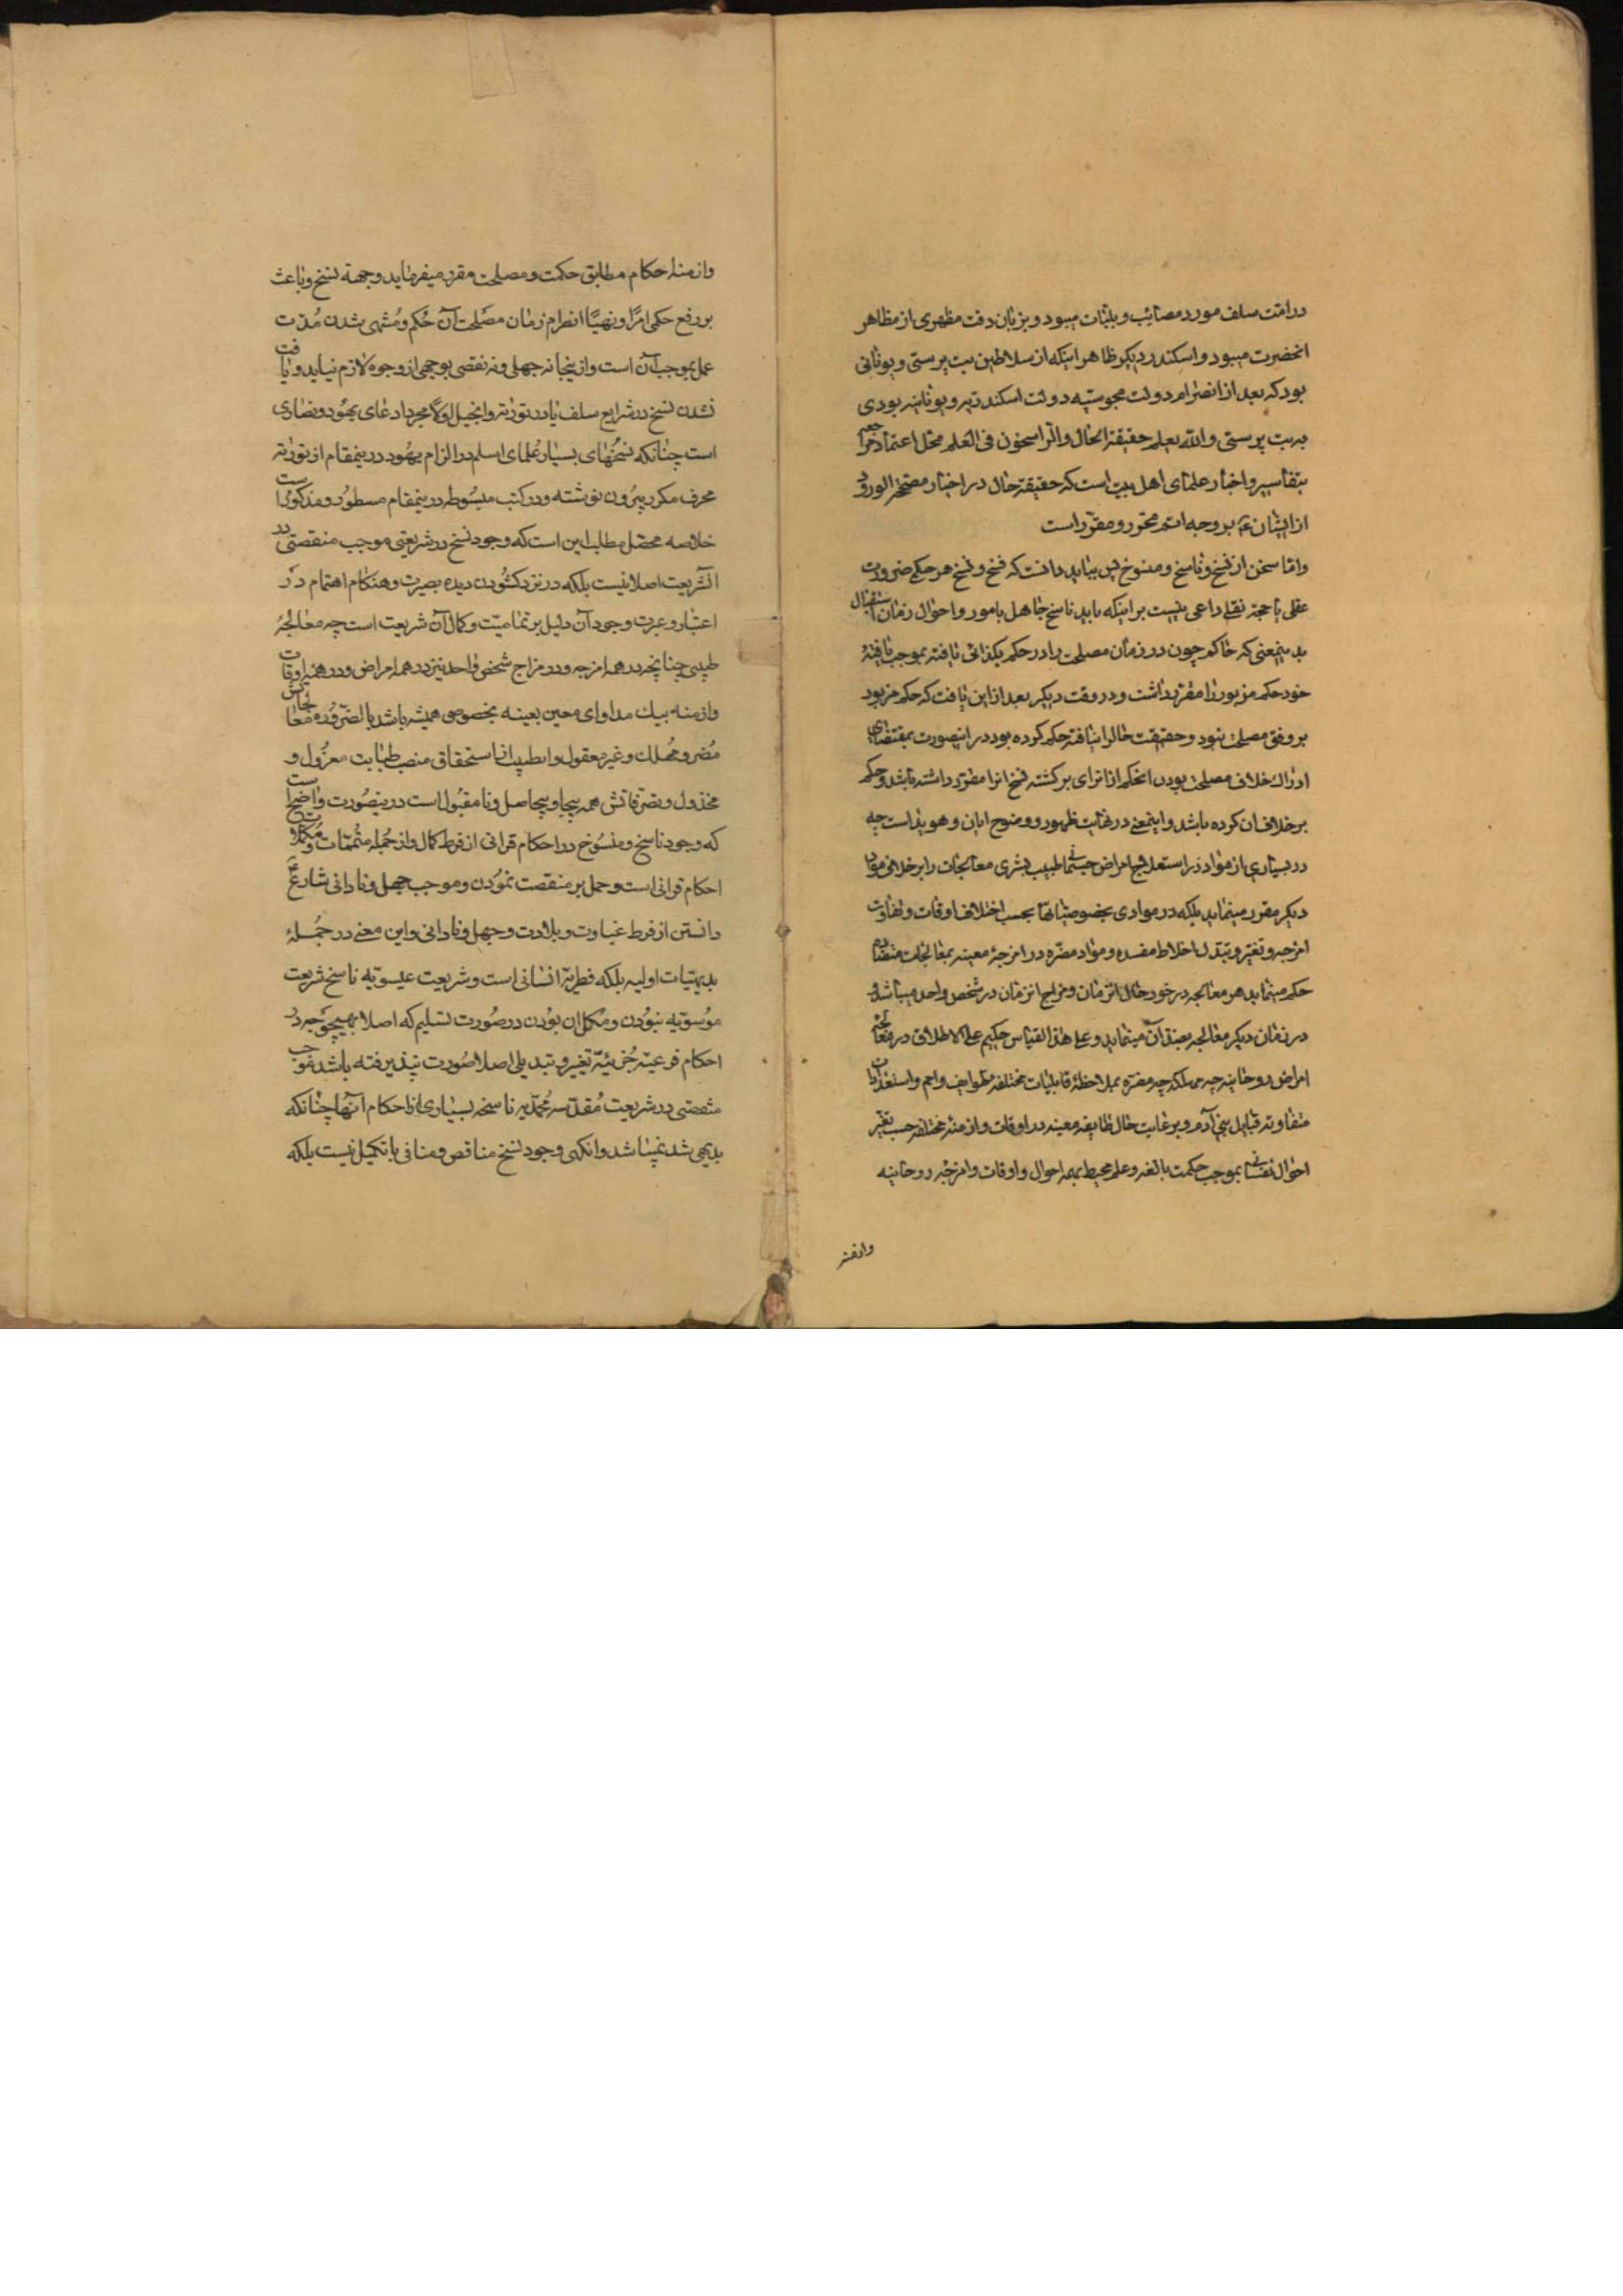 در امت سلف مورد مصائب و بلیّات میبود و بزبان دقت مظهری از مظاهر
انحضرت میبود و اسکندر دیکر ظاهر اینکه از سلاطین بت پرستی و یونانی
بود که بعد از انصرام دولت مجوسیه دولت اسکندریه و یونانیه بودی
به بت پرستی و الله یعلم حقیقة الحال و الراسخون فی العلم محل اعتماد
بتفاسیر و اخبار علمای اهل بیت است که حقیقة حال در اخبار صحیح الورود
از ایشان ع بر وجه اتم محرّر و مقرّر است
و امّا سخن از نسخ و ناسخ و منسوخ پس بباید دانست که فسخ و نسخ هر حکم ضرورت
عقلی یا حجة نقلی داعی نیست بر اینکه باید ناسخ جاهل بامور و احوال زمان استقبال
بدینمعنی که حاکم چون در زمان مصلحت را در حکم بکذائی یافته بموجب یافتهٔ
خود حکم مزبور را مقرّر داشت و در وقت دیکر بعد از این یافت که حکم مزبود
بر وفق مصلحت نبود و حقیقت حال را نیافته حکم کرده بود در اینصورت بمقتضای
ادراک خلاف مصلحت بودن انحکم از ان رای برکشته فسخ انرا مقرّر داشته باشد و حکم
برخلاف ان کرده باشد و اینمعنی در غایت ظهور و وضوح ابان و هویداست چه
در بسیاری از مواد در استعلاج امراض جسمانی طبیب بشری معالجات را بر خلاف مواد
دیکر مقرر مینماید بلکه در موادی بخصوصیاتها بحسب اختلاف اوقات و تفاوت
امزجه و تغیّر و تبدل اخلاط مفسده و مواد مضرّه در امزجهٔ معینه بمعالجات متضاده
حکم مینماید هر معالجه در خور حال انزمان و مزاج انزمان در شخص واحد میباشد و
در زمان دیکر معالجه بضد آن مینماید و علی هذا القیاس حکیم علی الاطلاق در معالجه
امراض روحانیه چه مهلکه چه مضرّه بملاحظهٔ قابلیات مختلفه طوایف و امم و استعدادات
متفاوته قبایل بنی آدم و برعایت حال طایفه معینه در اوقات و ازمنهٔ مختلفه حسب تغیّر
احوال نفسانی بموجب حکمت بالغه و علم محیط بهمه احوال و اوقات و امزجه روحانیه
وازمنه
وازمنه احکام مطابق حکمت و مصلحت مقرر میفرماید و جهة نسخ و باعث
بر رفع حکمی امرًا و نهیًا انصرام زمان مصلحت آن حُکم و مُنتهی شدن مُدت
عمل بموجب آن است و از ینجا نه جهلی و نه نقصی بوجهی از وجوه لازم نیاید و یافت
نشدن نسخ در شرایع سلف یا در توریة و انجیل اولا مجرد ادعای یهُود و نصاری
است چنانکه نسخهای بسیار عُلمای اسلم در الزام یهُود در ینمقام از توریة
محرف مکرر بیرُون نوشته و در کتب مبسُوطه در ینمقام مسطُور و مذکور است
خلاصه محصّل مطلب این است که وجود نسخ در شریعتی موجب منقصتی در
انشریعت اصلا نیست بلکه در نزد کشُودن دیده بصیرت و هنکام اهتمام در
اعتبار و عبرت وجود آن دلیل بر تمامیّت و کمال آن شریعت است چه معالجهٔ
طبیبی چنانچه در همه امزجه و در مزاج شخص واحد نیز در همه امراض و در همه اوقات
وازمنه بیک مداوای معین بعینه بخصوصی همیشه باشد بالضّروُره معالجاتش
مُضر و مُهلک و غیر معقول و ان طبیب از استحقاق منصب طبابت معزُول و
مخذول و تصرّفاتش همه بیجا و بیحاصل و نامقبُول است در ینصُورت واضح است
که وجود ناسخ و منسُوخ در احکام قرانی از فرط کمال و از جُمله متُممّات و مُکمّلات
احکام قرانی است و حمل بر منقصت نمُودن و موجب جهل و نادانی شارع ع
دانستن از فرط غباوت و بلادت و جهل و نادانی و این معنی در جُملهٔ
بدیهیّات اولیه بلکه فطریّهٔ انسانی است و شریعت عیسویّه ناسخ شریعت
موُسویّه نبوُدن و مُکمّل ان بوُدن در صُورت تسلیم که اصلا بهیچوَجه در
احکام فرعیّه جُزئیّه تغییر و تبدیلی اصلا صُورت نپذیرفته باشد موجب
منقصتی در شریعت مُقدّسه مُحمّدیه ناسخه بسیاری از احکام آنها چنانکه
بدیهی شد نمیباشد و انکهی وجود نسخ مناقض و منافی با تکمیل نیست بلکه